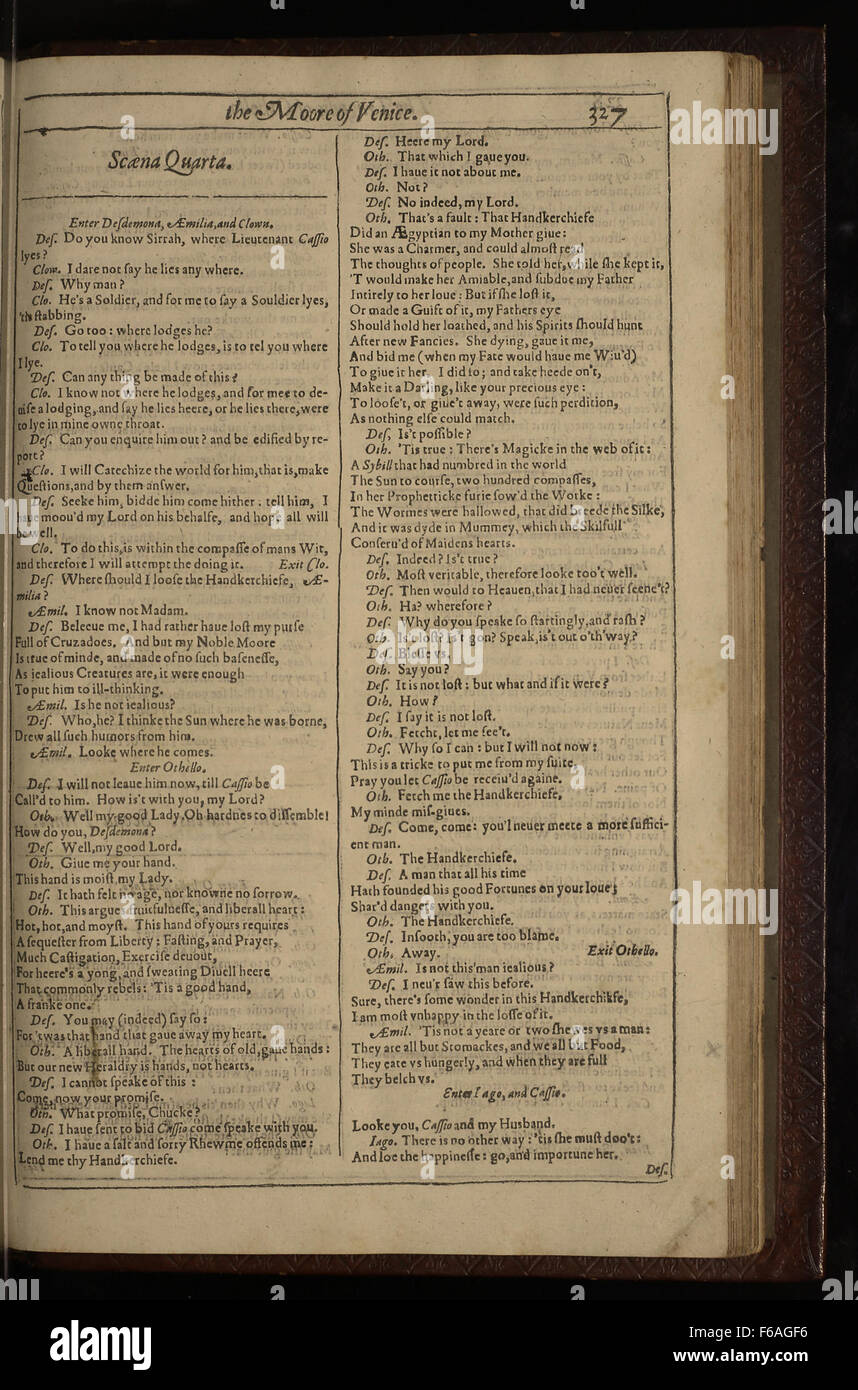 the Moore of Venice. 327
Scæna Quarta.
Enter Desdemona, Æmilia, and Clown.
Des. Do you know Sirrah, where Lieutenant Cassio
lyes?
Clow. I dare not say he lies any where.
Des. Why man?
Clo. He's a Soldier, and for me to say a Souldier lyes,
'tis stabbing.
Des. Go too: where lodges he?
Clo. To tell you where he lodges, is to tel you where
I lye.
Des. Can any thing be made of this?
Clo. I know not where he lodges, and for mee to de-
uise a lodging, and say he lies heere, or he lies there, were
to lye in mine owne throat.
Des. Can you enquire him out? and be edified by re-
port?
Clo. I will Catechize the world for him, that is, make
Questions, and by them answer.
Des. Seeke him, bidde him come hither. tell him, I
haue moou'd my Lord on his behalfe, and hope all will
be well.
Clo. To do this, is within the compasse of mans Wit,
and therefore I will attempt the doing it. Exit Clo.
Des. Where should I loose the Handkerchiefe, Æ-
milia?
Æmil. I know not Madam.
Des. Beleeue me, I had rather haue lost my purse
Full of Cruzadoes. And but my Noble Moore
Is true of minde, and made of no such basenesse,
As iealious Creatures are, it were enough
To put him to ill-thinking.
Æmil. Is he not iealious?
Des. Who, he? I thinke the Sun where he was borne,
Drew all such humors from him.
Æmil. Looke where he comes.
Enter Othello.
Des. I will not leaue him now, till Cassio be
Call'd to him. How is't with you, my Lord?
Oth. Well my good Lady. Oh hardnes to dissemble!
How do you, Desdemona?
Des. Well, my good Lord.
Oth. Giue me your hand.
This hand is moist, my Lady.
Des. It hath felt no age, nor knowne no sorrow.
Oth. This argues fruitfulnesse, and liberall heart:
Hot, hot, and moyst. This hand of yours requires
A sequester from Liberty: Fasting, and Prayer,
Much Castigation, Exercise deuout,
For heere's a yong, and sweating Diuell heere
That commonly rebels: 'Tis a good hand,
A franke one.
Des. You may (indeed) say so:
For 'twas that hand that gaue away my heart.
Oth. A liberall hand. The hearts of old, gaue hands:
But our new Heraldry is hands, not hearts.
Des. I cannot speake of this:
Come, now your promise.
Oth. What promise, Chucke?
Des. I haue sent to bid Cassio come speake with you.
Oth. I haue a salt and sorry Rhewme offends me:
Lend me thy Handkerchiefe.
Des. Heere my Lord.
Oth. That which I gaue you.
Des. I haue it not about me.
Oth. Not?
Des. No indeed, my Lord.
Oth. That's a fault: That Handkerchiefe
Did an Ægyptian to my Mother giue:
She was a Charmer, and could almost read
The thoughts of people. She told her, while she kept it,
'T would make her Amiable, and subdue my Father
Intirely to her loue: But if she lost it,
Or made a Guift of it, my Fathers eye
Should hold her loathed, and his Spirits should hunt
After new Fancies. She dying, gaue it me,
And bid me (when my Fate would haue me Wiu'd)
To giue it her. I did so; and take heede on't,
Make it a Darling, like your precious eye:
To loose't, or giue't away, were such perdition,
As nothing else could match.
Des. Is't possible?
Oth. 'Tis true: There's Magicke in the web of it:
A Sybill that had numbred in the world
The Sun to course, two hundred compasses,
In her Prophetticke furie sow'd the Worke:
The Wormes were hallowed, that did breede the Silke,
And it was dyde in Mummey, which the Skilfull
Conseru'd of Maidens hearts.
Des. Indeed? Is't true?
Oth. Most veritable, therefore looke too't well.
Des. Then would to Heauen, that I had neuer seene't?
Oth. Ha? wherefore?
Des. Why do you speake so startingly, and rash?
Oth. Is't lost? Is't gon? Speak, is't out o'th'way?
Des. Blesse vs.
Oth. Say you?
Des. It is not lost: but what and if it were?
Oth. How?
Des. I say it is not lost.
Oth. Fetcht, let me see't.
Des. Why so I can: but I will not now:
This is a tricke to put me from my suite,
Pray you let Cassio be receiu'd againe.
Oth. Fetch me the Handkerchiefe,
My minde mis-giues.
Des. Come, come: you'l neuer meete a more suffici-
ent man.
Oth. The Handkerchiefe.
Des. A man that all his time
Hath founded his good Fortunes on your loue;
Shar'd dangers with you.
Oth. The Handkerchiefe.
Des. Insooth, you are too blame.
Oth. Away. Exit Othello.
Æmil. Is not this man iealious?
Des. I neu'r saw this before.
Sure, there's some wonder in this Handkerchiefe,
I am most vnhappy in the losse of it.
Æmil. 'Tis not a yeare or two shewes vs a man:
They are all but Stomackes, and we all but Food,
They eate vs hungerly, and when they are full
They belch vs.
Enter Iago, and Cassio.
Looke you, Cassio and my Husband.
Iago. There is no other way: 'tis she must doo't:
And loe the happinesse: go, and importune her.
Des.
alamy
Image ID: F6AGF6
www.alamy.com